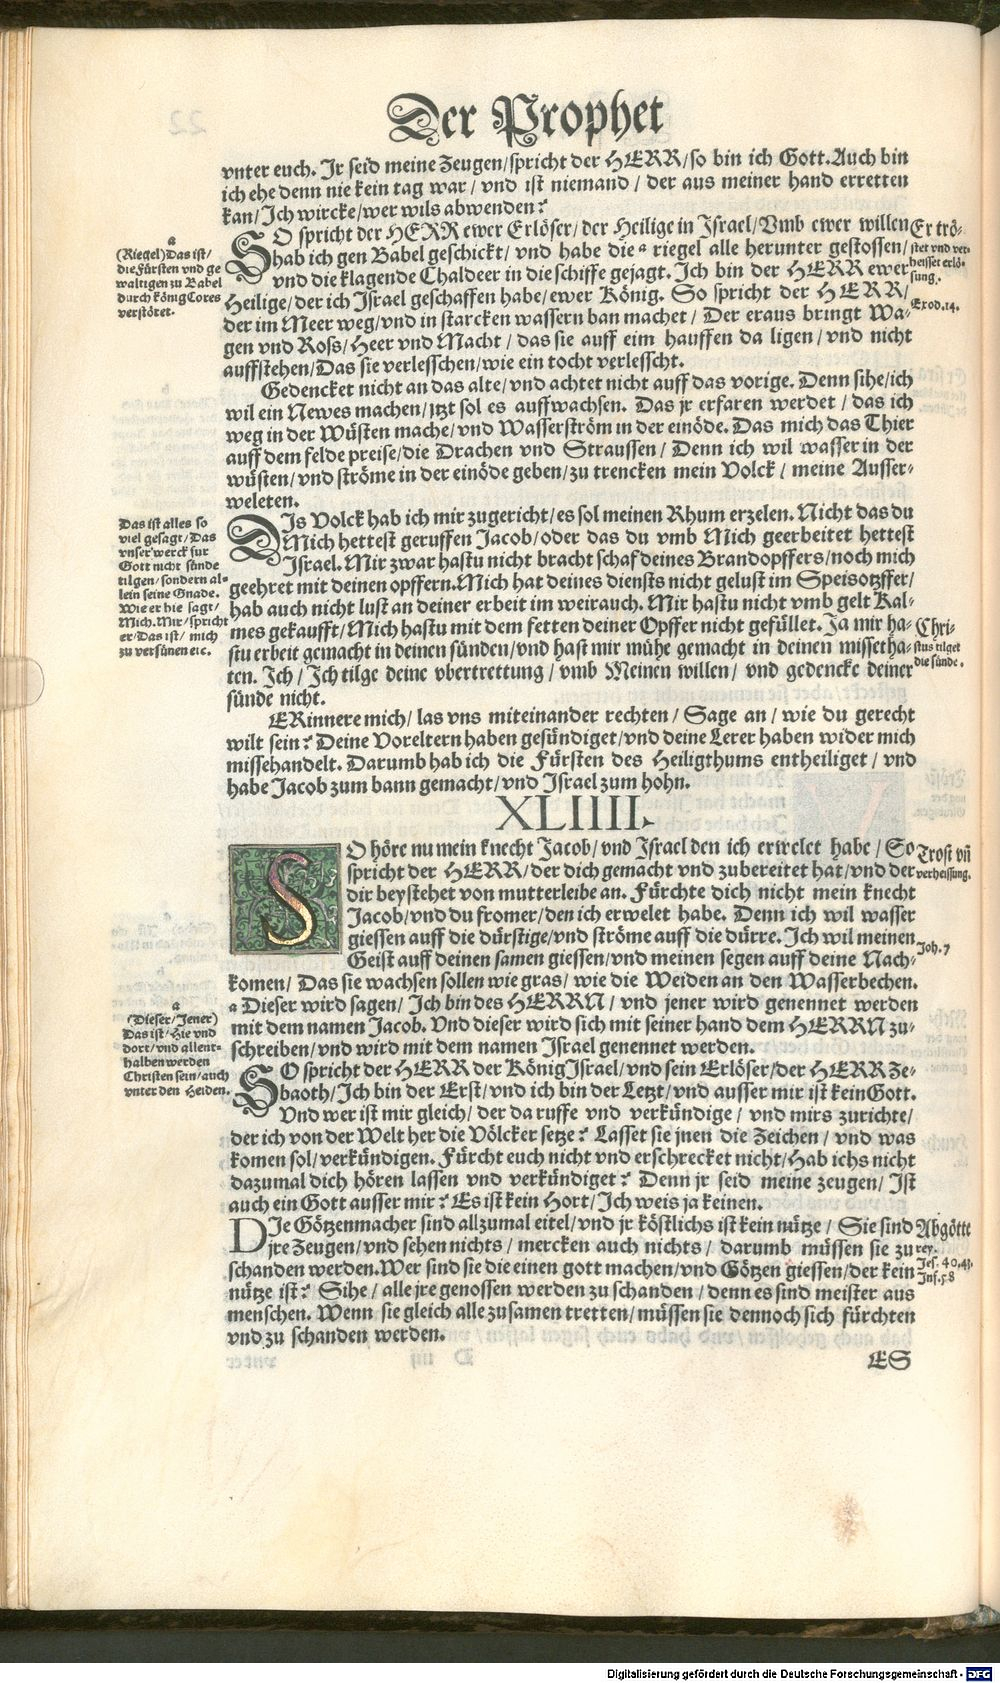 Der Prophet
vnter euch. Jr seid meine Zeugen/spricht der HERR/so bin ich Gott. Auch bin
ich ehe denn nie kein tag war/vnd ist niemand/der aus meiner hand erretten
kan/Ich wircke/wer wils abwenden?
SO spricht der HERR ewer Erlöser/der Heilige in Israel/Vmb ewer willen
hab ich gen Babel geschickt/vnd habe die a riegel alle herunter gestossen/
vnd die klagende Chaldeer in die schiffe gejagt. Ich bin der HERR ewer
Heilige/der ich Israel geschaffen habe/ewer König. So spricht der HERR/
der im Meer weg/vnd in starcken wassern ban machet/Der eraus bringt Wa-
gen vnd Ross/Heer vnd Macht/das sie auff eim hauffen da ligen/vnd nicht
auffstehen/Das sie verlesschen/wie ein tocht verlesscht.
Gedencket nicht an das alte/vnd achtet nicht auff das vorige. Denn sihe/ich
wil ein Newes machen/itzt sol es auffwachsen. Das jr erfaren werdet/das ich
weg in der Wüsten mache/vnd Wasserström in der einöde. Das mich das Thier
auff dem felde preise/die Drachen vnd Straussen/Denn ich wil wasser in der
wüsten/vnd ströme in der einöde geben/zu trencken mein Volck/meine Ausser-
weleten.
DIs Volck hab ich mir zugericht/es sol meinen Rhum erzelen. Nicht das du
Mich hettest geruffen Jacob/oder das du vmb Mich geerbeitet hettest
Israel. Mir zwar hastu nicht bracht schaf deines Brandopffers/noch mich
geehret mit deinen opffern. Mich hat deines diensts nicht gelust im Speisopffer/
hab auch nicht lust an deiner erbeit im weirauch. Mir hastu nicht vmb gelt Kal-
mes gekaufft/Mich hastu mit dem fetten deiner Opffer nicht gefüllet. Ja mir ha-
stu erbeit gemacht in deinen sünden/vnd hast mir mühe gemacht in deinen missetha-
ten. Ich/Ich tilge deine vbertrettung/vmb Meinen willen/vnd gedencke deiner
sünde nicht.
ERinnere mich/las vns miteinander rechten/Sage an/wie du gerecht
wilt sein? Deine Voreltern haben gesündiget/vnd deine Lerer haben wider mich
missehandelt. Darumb hab ich die Fürsten des Heiligthums entheiliget/vnd
habe Jacob zum bann gemacht/vnd Israel zum hohn.
XLIIII.
SO höre nu mein knecht Jacob/vnd Israel den ich erwelet habe/So
spricht der HERR/der dich gemacht vnd zubereitet hat/vnd der
dir beystehet von mutterleibe an. Fürchte dich nicht mein knecht
Jacob/vnd du fromer/den ich erwelet habe. Denn ich wil wasser
giessen auff die dürstige/vnd ströme auff die dürre. Ich wil meinen
Geist auff deinen samen giessen/vnd meinen segen auff deine Nach-
komen/Das sie wachsen sollen wie gras/wie die Weiden an den Wasserbechen.
a Dieser wird sagen/Ich bin des HERRN/vnd jener wird genennet werden
mit dem namen Jacob. Vnd dieser wird sich mit seiner hand dem HERRN zu-
schreiben/vnd wird mit dem namen Israel genennet werden.
SO spricht der HERR der König Israel/vnd sein Erlöser/der HERR Ze-
baoth/Ich bin der Erst/vnd ich bin der Letzt/vnd ausser mir ist kein Gott.
Vnd wer ist mir gleich/der da ruffe vnd verkündige/vnd mirs zurichte/
der ich von der Welt her die Völcker setze? Lasset sie jnen die Zeichen/vnd was
komen sol/verkündigen. Fürcht euch nicht vnd erschrecket nicht/Hab ichs nicht
dazumal dich hören lassen vnd verkündiget? Denn jr seid meine zeugen/Ist
auch ein Gott ausser mir? Es ist kein Hort/Ich weis ja keinen.
DIe Götzenmacher sind allzumal eitel/vnd jr köstlichs ist kein nütze/Sie sind
jre Zeugen/vnd sehen nichts/mercken auch nichts/darumb müssen sie zu
schanden werden. Wer sind sie die einen gott machen/vnd Götzen giessen/der kein
nütze ist? Sihe/alle jre genossen werden zu schanden/denn es sind meister aus
menschen. Wenn sie gleich alle zusamen tretten/müssen sie dennoch sich fürchten
vnd zu schanden werden.
ES
a
(Riegel) Das ist/
die Fürsten vnd ge
waltigen zu Babel
durch könig Cores
verstöret.
Das ist alles so
viel gesagt/Das
vnser werck fur
Gott nicht sünde
tilgen/sondern al-
lein seine Gnade.
Wie er hie sagt/
Mich. Mir/spricht
er/Das ist/mich
zu versünen etc.
a
(Dieser/Jener)
Das ist/Hie vnd
dort/vnd allent-
halben werden
Christen sein/auch
vnter den Heiden.
Er trö-
stet vnd ver-
heisset erlö-
sung.
Exod. 14.
Chri-
stus tilget
die sünde.
Trost vñ
verheissung.
Joh. 7
Abgötte
rey.
Jes. 40. 41.
Inf. 58
Digitalisierung gefördert durch die Deutsche Forschungsgemeinschaft - DFG